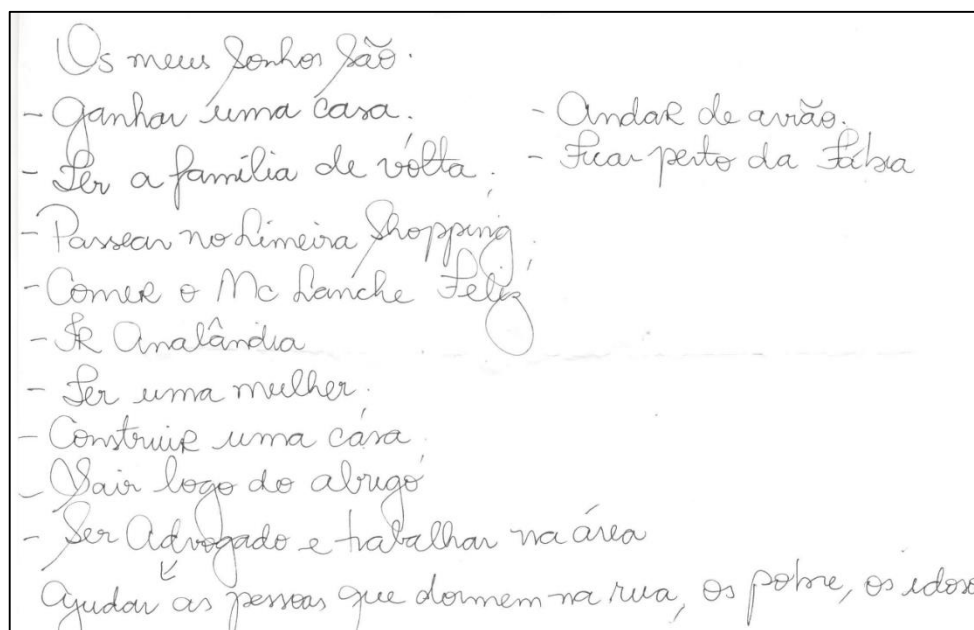 Os meus sonhos são.
- Ganhar uma casa.
- Ter a família de volta.
- Passear no Limeira Shopping
- Comer o Mc Lanche Feliz
- IR Analândia
- Ter uma mulher.
- Construir uma casa
- Sair logo do abrigo
- Ser Advogado e trabalhar na área
Ajudar as pessoas que dormem na rua, os pobre, os idoso
- Andar de avião.
- Ficar perto da Fábia